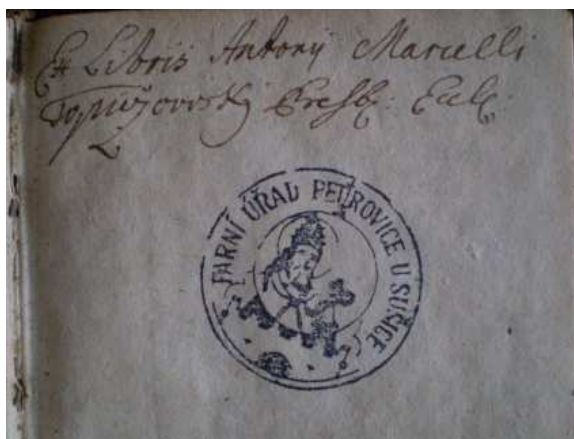 Ex Libris Antonij Marcelli
Presb: Eccl:
FARNÍ ÚŘAD PETROVICE U SUŠICE